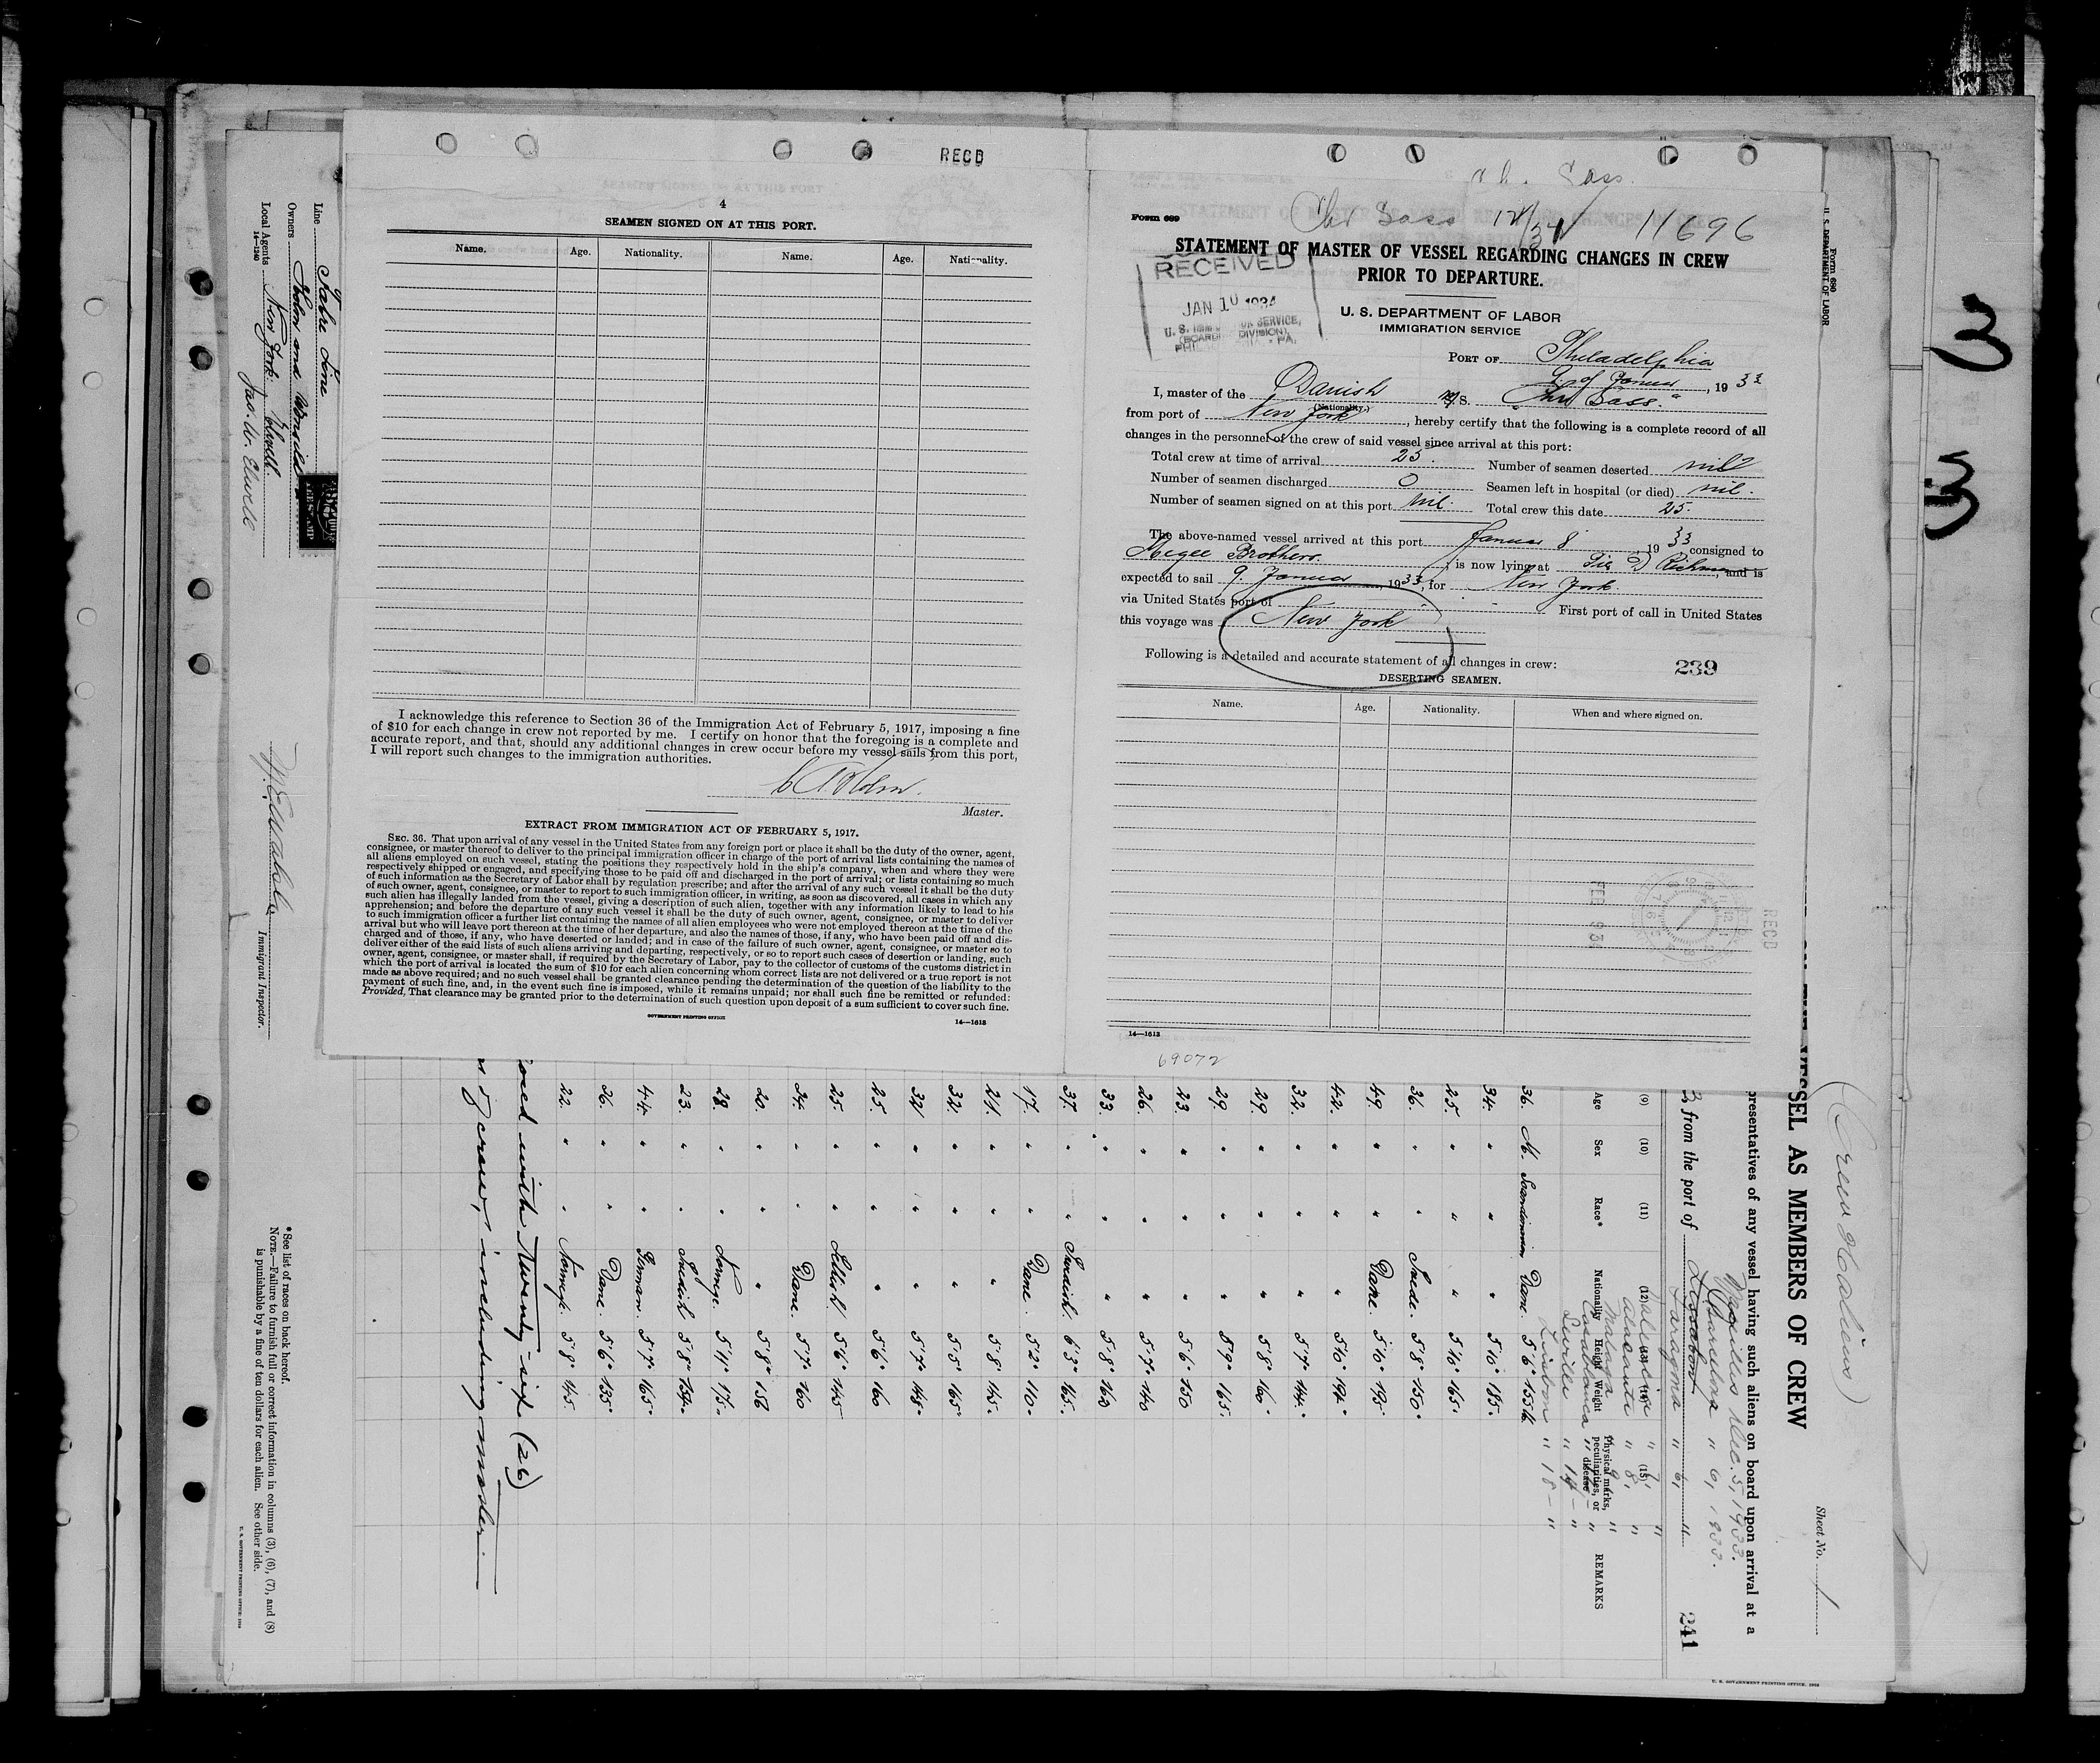 RECD
4
SEAMEN SIGNED ON AT THIS PORT.
Name. Age. Nationality. Name. Age. Nationality.
I acknowledge this reference to Section 36 of the Immigration Act of February 5, 1917, imposing a fine
of $10 for each change in crew not reported by me. I certify on honor that the foregoing is a complete and
accurate report, and that, should any additional changes in crew occur before my vessel sails from this port,
I will report such changes to the immigration authorities.
Master.
EXTRACT FROM IMMIGRATION ACT OF FEBRUARY 5, 1917.
SEC. 36. That upon arrival of any vessel in the United States from any foreign port or place it shall be the duty of the owner, agent,
consignee, or master thereof to deliver to the principal immigration officer in charge of the port of arrival lists containing the names of
all aliens employed on such vessel, stating the positions they respectively hold in the ship's company, when and where they were
respectively shipped or engaged, and specifying those to be paid off and discharged in the port of arrival; or lists containing so much
of such information as the Secretary of Labor shall by regulation prescribe; and after the arrival of any such vessel it shall be the duty
of such owner, agent, consignee, or master to report to such immigration officer, in writing, as soon as discovered, all cases in which any
such alien has illegally landed from the vessel, giving a description of such alien, together with any information likely to lead to his
apprehension; and before the departure of any such vessel it shall be the duty of such owner, agent, consignee, or master to deliver
to such immigration officer a further list containing the names of all alien employees who were not employed thereon at the time of the
arrival but who will leave port thereon at the time of her departure, and also the names of those, if any, who have been paid off and dis-
charged and of those, if any, who have deserted or landed; and in case of the failure of such owner, agent, consignee, or master so to
deliver either of the said lists of such aliens arriving and departing, respectively, or so to report such cases of desertion or landing, such
owner, agent, consignee, or master shall, if required by the Secretary of Labor, pay to the collector of customs of the customs district in
which the port of arrival is located the sum of $10 for each alien concerning whom correct lists are not delivered or a true report is not
made as above required; and no such vessel shall be granted clearance pending the determination of the question of the liability to the
payment of such fine, and, in the event such fine is imposed, while it remains unpaid; nor shall such fine be remitted or refunded:
Provided, That clearance may be granted prior to the determination of such question upon deposit of a sum sufficient to cover such fine.
GOVERNMENT PRINTING OFFICE
14—1613
Form 689 Chr Sass 11696
STATEMENT OF MASTER OF VESSEL REGARDING CHANGES IN CREW
PRIOR TO DEPARTURE.
RECEIVED
JAN 10 1934
U. S. DEPARTMENT OF LABOR
IMMIGRATION SERVICE
PORT OF Philadelphia
9 of Januar, 19 33
I, master of the Danish S. "Chr Sass."
(Nationality.)
from port of New York, hereby certify that the following is a complete record of all
changes in the personnel of the crew of said vessel since arrival at this port:
Total crew at time of arrival 25. Number of seamen deserted nil
Number of seamen discharged 0 Seamen left in hospital (or died) nil.
Number of seamen signed on at this port Nil. Total crew this date 25.
The above-named vessel arrived at this port Januar 8, 19 33 consigned to
Megee Brothers., is now lying at Pier D Richm, and is
expected to sail 9. Januar, 1933, for New York.
via United States port of First port of call in United States
this voyage was New York
Following is a detailed and accurate statement of all changes in crew:
239
DESERTING SEAMEN.
Name. Age. Nationality. When and where signed on.
FEB 9 34
RECD
14—1613
69072
Form 680
U. S. DEPARTMENT OF LABOR
(Crew Aliens)
Sheet No. 1
VESSEL AS MEMBERS OF CREW
presentatives of any vessel having such aliens on board upon arrival at a
3 from the port of Lissabon
Marseilles Dec. 5, 1933.
Barcelona " 6, 1933.
Taragona " 6, "
Valencia " 7, "
Alicante " 8, "
Malaga " 9, "
Casablanca " "
Seville " 14 - "
Lisbon " 18 - "
241
(9) (10) (11) (12) (13) (14) (15)
Age Sex Race* Nationality Height Weight Physical marks, peculiarities, or disease REMARKS
36. M. Scandinavian Dane. 5'6" 155 lb
34. " " " 5'10" 185.
25. " " " 5'10" 165.
36. " " Swede. 5'8" 150.
49. " " Dane. 5'10" 193
42. " " " 5'10" 194.
32. " " " 5'7" 144.
29. " " " 5'8" 160.
29. " " " 5'9" 165.
23. " " " 5'6" 150
26. " " " 5'7" 140
33. " " " 5'8" 163
37. " " Swedish. 6'3" 165.
17. " " Dane. 5'2" 110.
21. " " " 5'8" 145.
32. " " " 5'5" 165.
32. " " " 5'7" 148.
25. " " " 5'6" 160
25. " " 5'6" 145
24. " " Dane. 5'7" 160
20. " " " 5'8" 156
28. " " Norweg. 5'11" 175.
23. " " Swedish 5'8" 134.
44. " " German. 5'7" 165.
36. " " Dane. 5'6" 135.
22. " " Norweg. 5'8" 145.
osed with twenty-six (26)
of crew, including master
* See list of races on back hereof.
NOTE.—Failure to furnish full or correct information in columns (3), (6), (7), and (8)
is punishable by a fine of ten dollars for each alien. See other side.
U. S. GOVERNMENT PRINTING OFFICE
Line Fabre Line
Owners Holm and Wonsild
Local Agents New York: Elwell.
14—1240
Jas. W. Elwell
Immigrant Inspector.
3
3